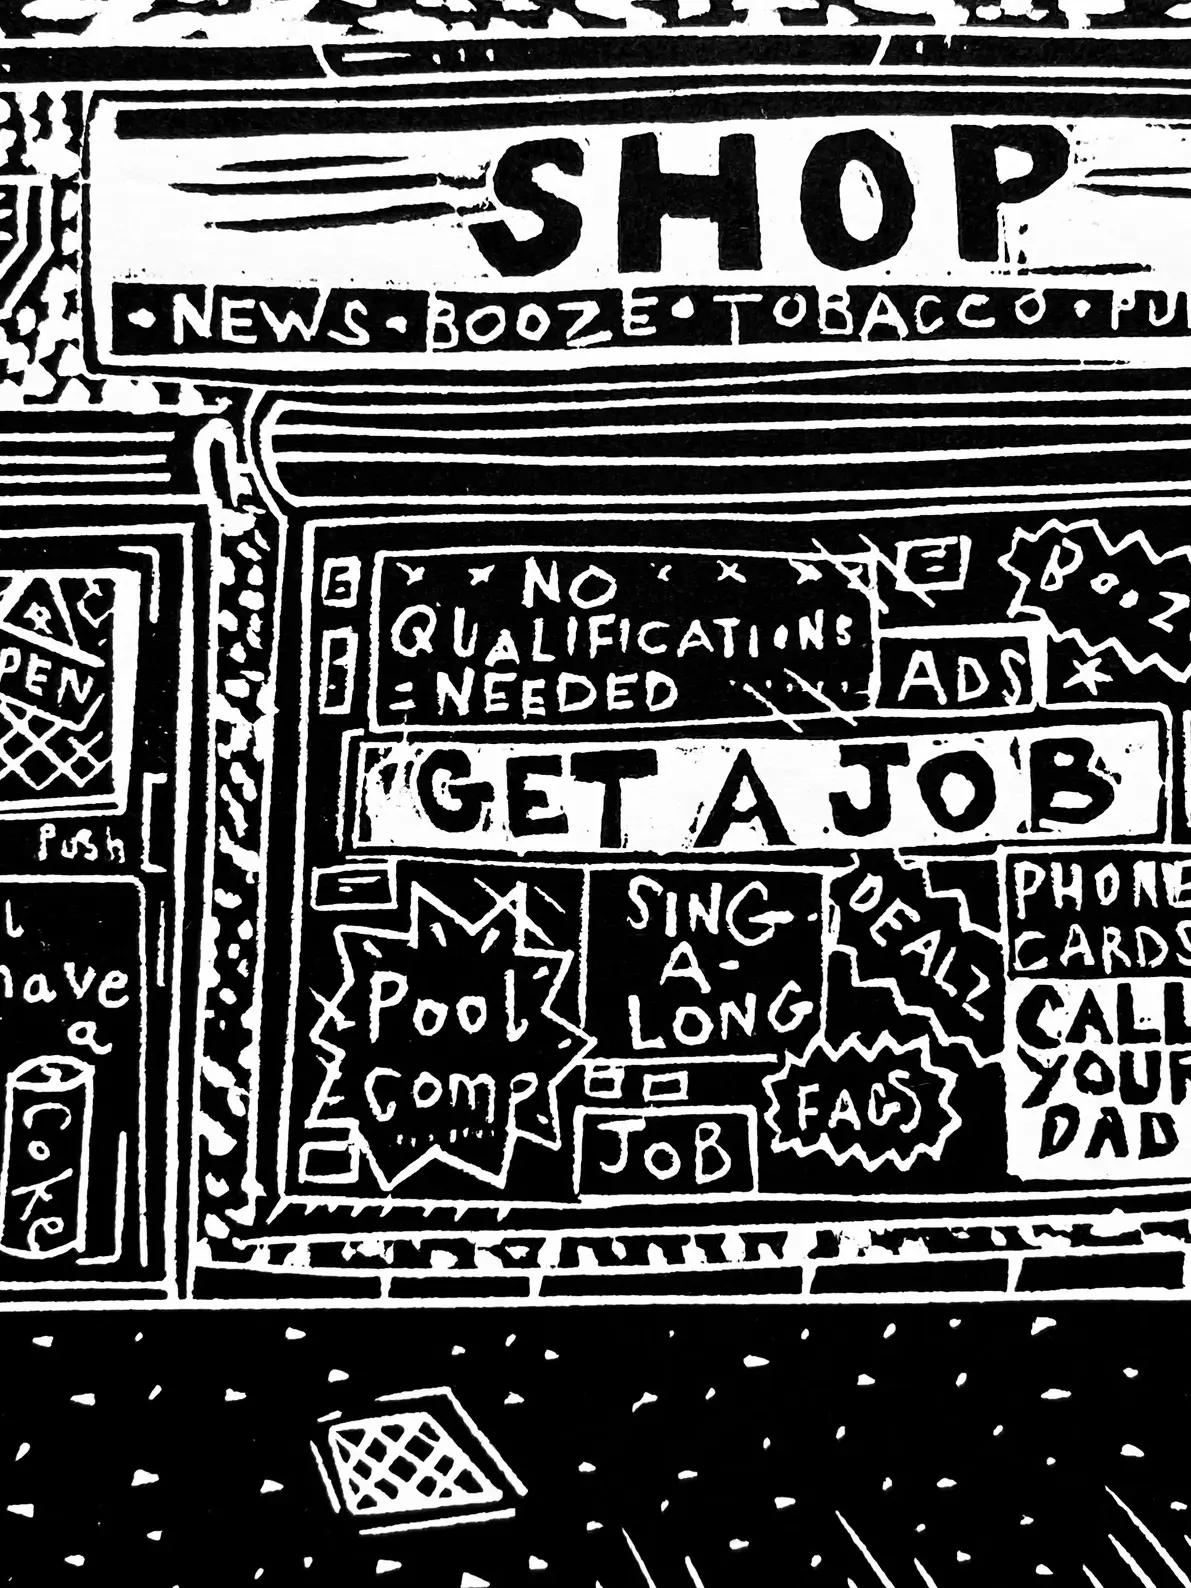 SHOP
• NEWS • BOOZE • TOBACCO • PU
NO
QUALIFICATIONS
= NEEDED
ADS
BooZ
PEN
GET A JOB
Push
PHONE
CARDS
CALL
YOUR
DAD
SING-
A-
LONG
DEALZ
Pool
comp
have
a
CoKe
FAGS
JOB